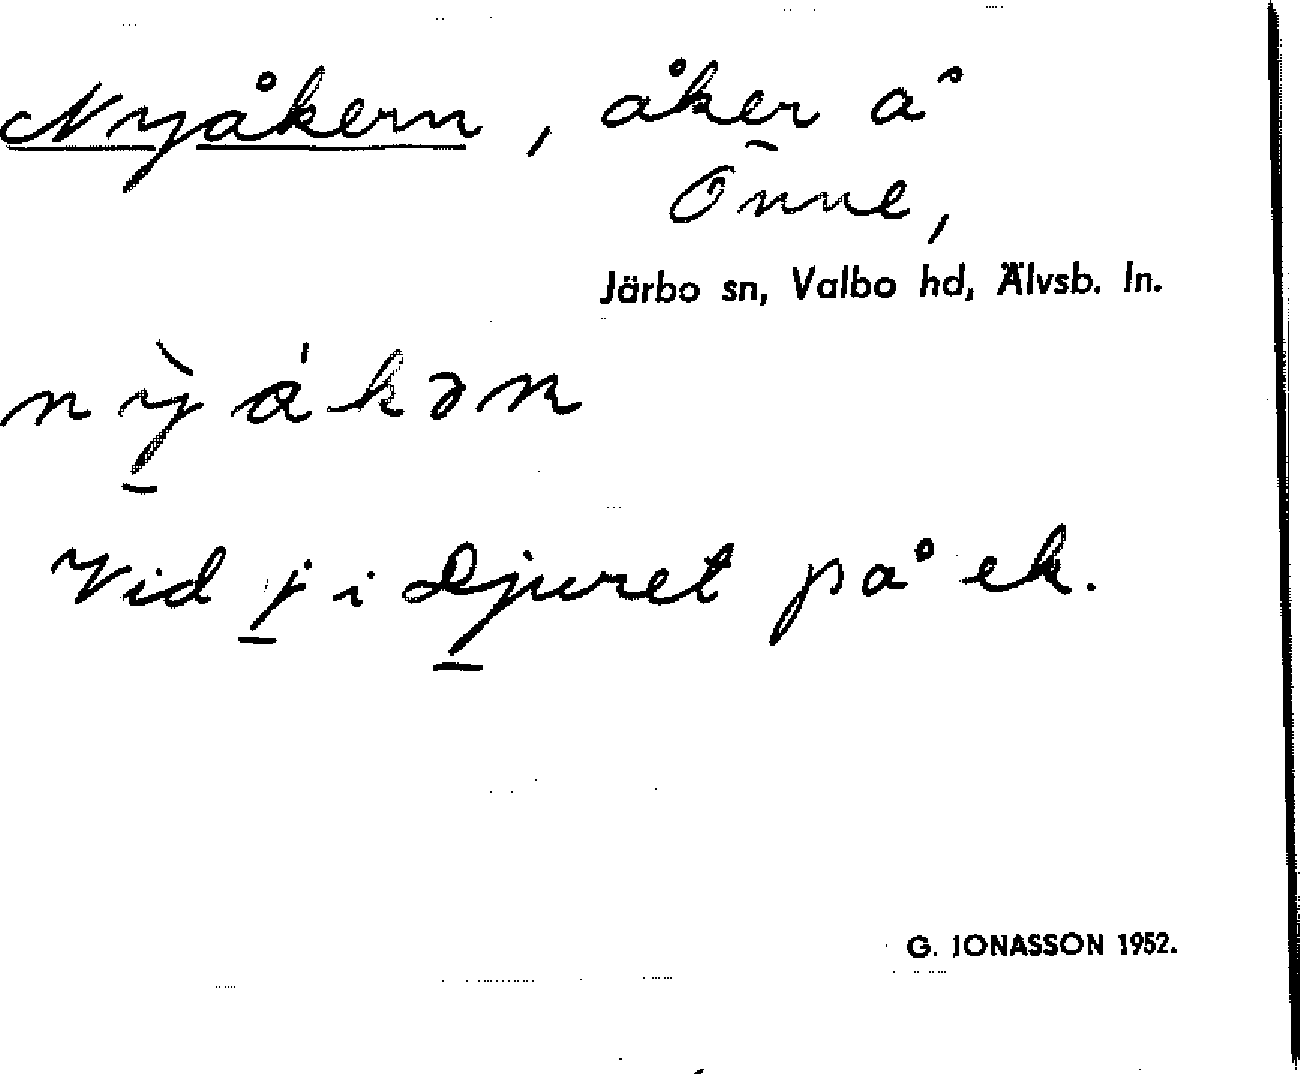 Nyåkern, åker å
Önne,
Järbo sn, Valbo hd, Älvsb. ln.
nỳákən
Vid j i Djuret på ek.
G. JONASSON 1952.